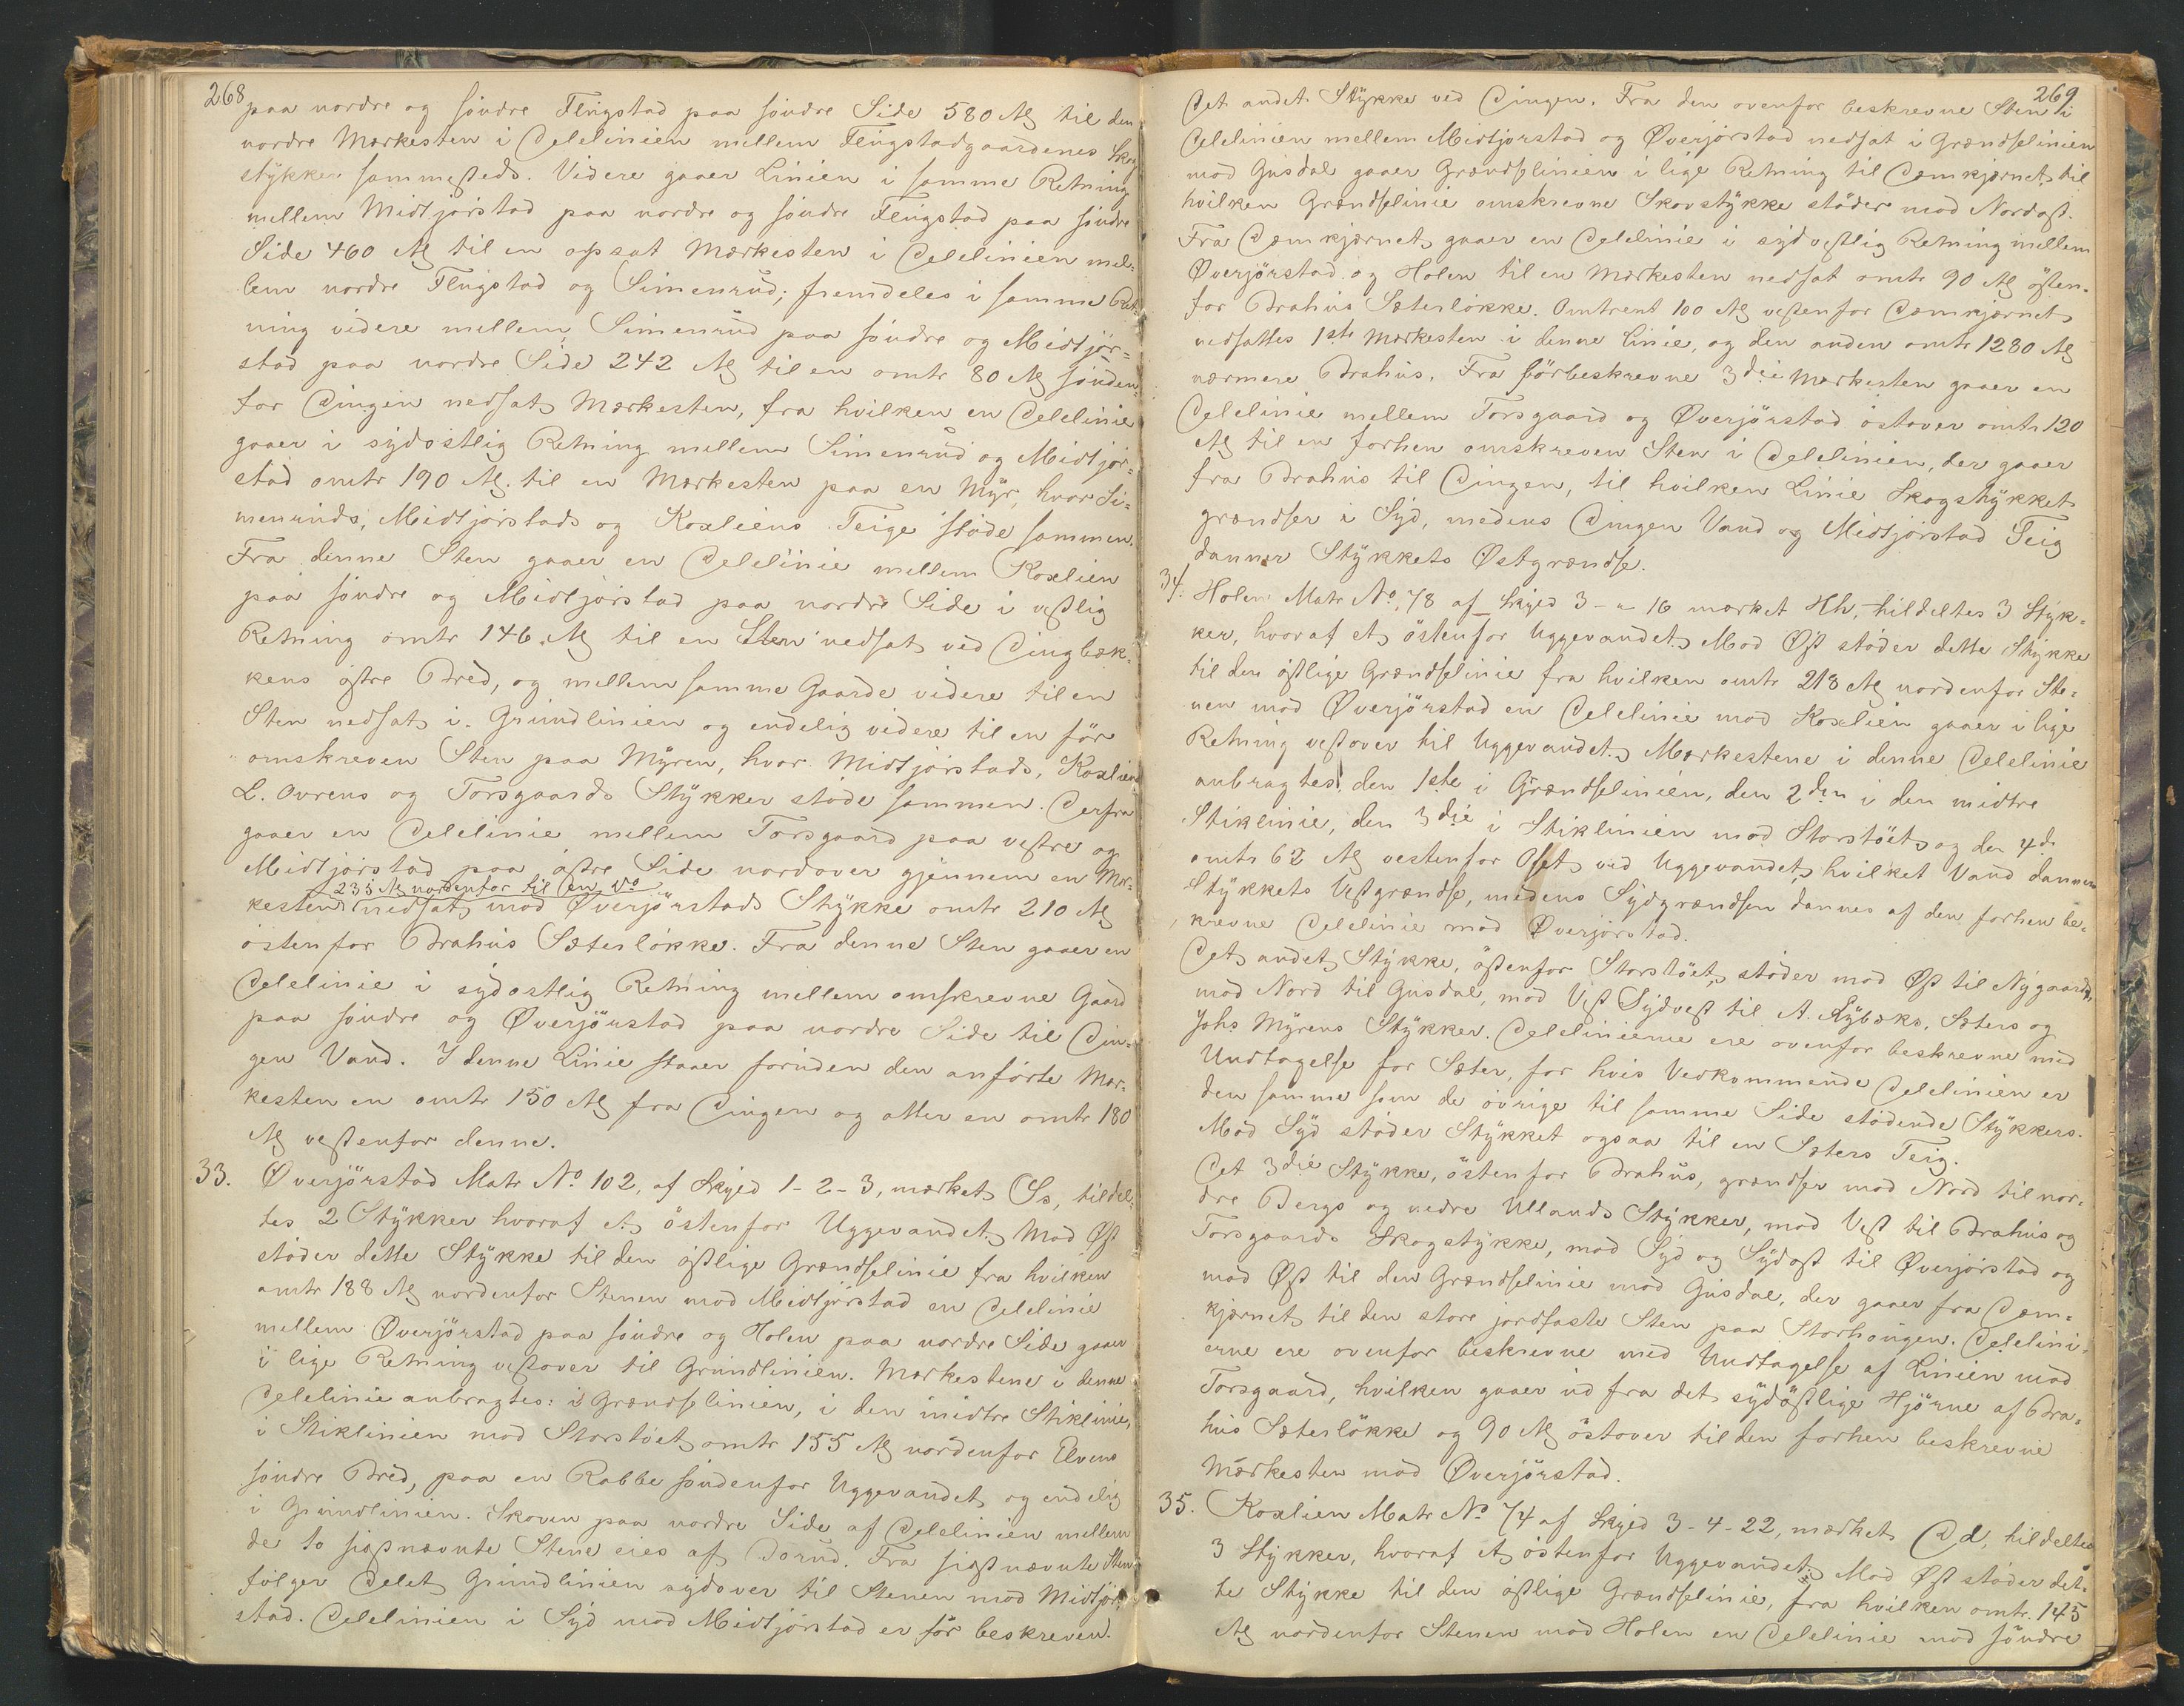 268
paa nordre og söndre Flugstad paa söndre Side 580 Al til den
nordre Mærkesten i Delelinien mellem Flugstadgaardenes Skog
stykker sammesteds. Videre gaaer Linien i samme Retning
mellem Midtjörstad paa nordre og söndre Flugstad paa söndre
Side 460 Al til en opsat Mærkesten i Delelinien mel-
lem nordre Flugstad og Simenrud; fremdeles i samme Ret-
ning videre mellem Simenrud paa söndre og Midtjör-
stad paa nordre Side 242 Al til en omtr 80 Al sönden-
for Dingen nedsat Mærkesten, fra hvilken en Delelinie
gaaer i sydöstlig Retning mellem Simenrud og Midtjör-
stad omtr 190 Al. til en Mærkesten paa en Myr, hvor Si-
menruds, Midtjörstads og Koxliens Teige stöde sammen.
Fra denne Sten gaaer en Delelinie mellem Koxlien
paa söndre og Midtjörstad paa nordre Side i vestlig
Retning omtr 146 Al til en Sten nedsat ved Dingbæk-
kens östre Bred, og mellem samme Gaarde videre til en
Sten nedsat i Grundlinien og endelig videre til en för
omskreven Sten paa Myren, hvor Midtjörstads, Koxliens
L. Ovrens og Torsgaards Stykker stöde sammen. Derfra
gaaer en Delelinie mellem Torsgaard paa vestre og
Midtjörstad paa östre Side nordover gjennem en Mær-
235 Al nordenfor til en do
kesten nedsat mod Överjörstads Stykke omtr 210 Al
östenfor Brahus Sæterlökke. Fra denne Sten gaaer en
Delelinie i sydostlig Retning mellem omskrevne Gaard
paa söndre og Överjörstad paa nordre Side til Din-
gen Vand. I denne Linie staaer foruden den anförte Mær-
kesten en omtr 150 Al fra Dingen og atter en omtr 180
Al vestenfor denne.
33. Øverjörstad Matr No 102, af Skyld 1-2-3, mærket Ss, tildel-
tes 2 Stykker hvoraf et östenfor Uggevandet. Mod Öst
stöder dette Stykke til den östlige Grændselinie fra hvilken
omtr 188 Al nordenfor Stenen mod Midtjörstad en Delelinie
mellem Øverjörstad paa söndre og Holen paa nordre Side gaaer
i lige Retning vestover til Grundlinien. Mærkestene i denne
Delelinie anbragtes: i Grændselinien, i den midtre Stiklinie,
i Stiklinien mod Storstöet omtr 155 Al nordenfor Elvens
söndre Bred, paa en Rabbe söndenfor Uggevandet og endelig
i Grundlinien. Skoven paa nordre Side af Delelinien mellem
de to sidstnævnte Stene eies af Dorud. Fra sidstnævnte Sten
fölger Delet Grundlinien sydover til Stenen mod Midtjör-
stad. Delelinien i Syd mod Midtjörstad er för beskreven.
269
Det andet Stykke ved Dingen. Fra den ovenfor beskrevne Sten i
Delelinien mellem Midtjörstad og Øverjörstad nedsat i Grændselinien
mod Gusdal gaaer Grændselinien i lige Retning til Damkjærnet, til
hvilken Grændselinie omskrevne Skovstykke stöder mod Nordost.
Fra Damkjærnet gaaer en Delelinie i sydvestlig Retning mellem
Øverjörstad og Holen til en Mærkesten nedsat omtr 90 Al östen-
for Brahus Sæterlökke. Omtrent 100 Al vestenfor Damkjærnet
nedsattes 1ste Mærkesten i denne Linie, og den anden omtr 1280 Al
nærmere Brahus. Fra förbeskrevne 3die Mærkesten gaaer en
Delelinie mellem Torsgaard og Øverjörstad östover omtr 120
Al til en forhen omskreven Sten i Delelinien, der gaaer
fra Brahus til Dingen, til hvilken Linie Skogstykket
grændser i Syd, medens Dingen Vand og Midtjörstad Teig
danner Stykkets Östgrændse.
34. Holen Matr No 78 af Skyld 3-"-16 mærket Hh, tildeltes 3 Styk-
ker, hvoraf et östenfor Uggevandet. Mod Öst stöder dette Stykke
til den östlige Grændselinie fra hvilken omtr 213 Al nordenfor Ste-
nen mod Øverjörstad en Delelinie mod Koxlien gaaer i lige
Retning vestover til Uggevandet. Mærkestene i denne Delelinie
anbragtes: den 1ste i Grændselinien, den 2den i den midtre
Stiklinie, den 3die i Stiklinien mod Storstöet, og den 4de
omtr 62 Al vestenfor Oset ved Uggevandet, hvilket Vand danner
Stykkets Vestgrændse, medens Sydgrændsen dannes af den forhen be-
skrevne Delelinie mod Øverjörstad.
Det andet Stykke, östenfor Storstöet, stöder mod Öst til Nygaard,
mod Nord til Gusdal, mod Vest Sydvest til A. Rybæks, Sæters og
Johs Myrens Stykker. Delelinierne ere ovenfor beskrevne med
Undtagelse for Sæter, for hvis Vedkommende Delelinien er
den samme som de övrige til samme Side stödende Stykkers.
Mod Syd stöder Stykket ogsaa til en Sæters Teig.
Det 3die Stykke, östenfor Brahus, grændser mod Nord til nor-
dre Bergs og nedre Ullands Stykker, mod Vest til Brahus og
Torsgaards Skogstykke, mod Syd og Sydost til Øverjörstad og
mod Öst til den Grændselinie mod Gusdal, der gaaer fra Dam-
kjærnet til den store jordfaste Sten paa Storhougen. Delelini-
erne ere ovenfor beskrevne med Undtagelse af Linien mod
Torsgaard, hvilken gaaer ud fra det sydöstlige Hjörne af Bra-
hus Sæterlökke og 90 Al östover til den forhen beskrevne
Mærkesten mod Øverjörstad.
35. Koxlien Matr No 74 af Skyld 3-4-22, mærket Dd, tildeltes
3 Stykker, hvoraf et östenfor Uggevandet. Mod Öst stöder det-
te Stykke til den östlige Grændselinie, fra hvilken omtr. 145
Al nordenfor Stenen mod Holen en Delelinie mod söndre